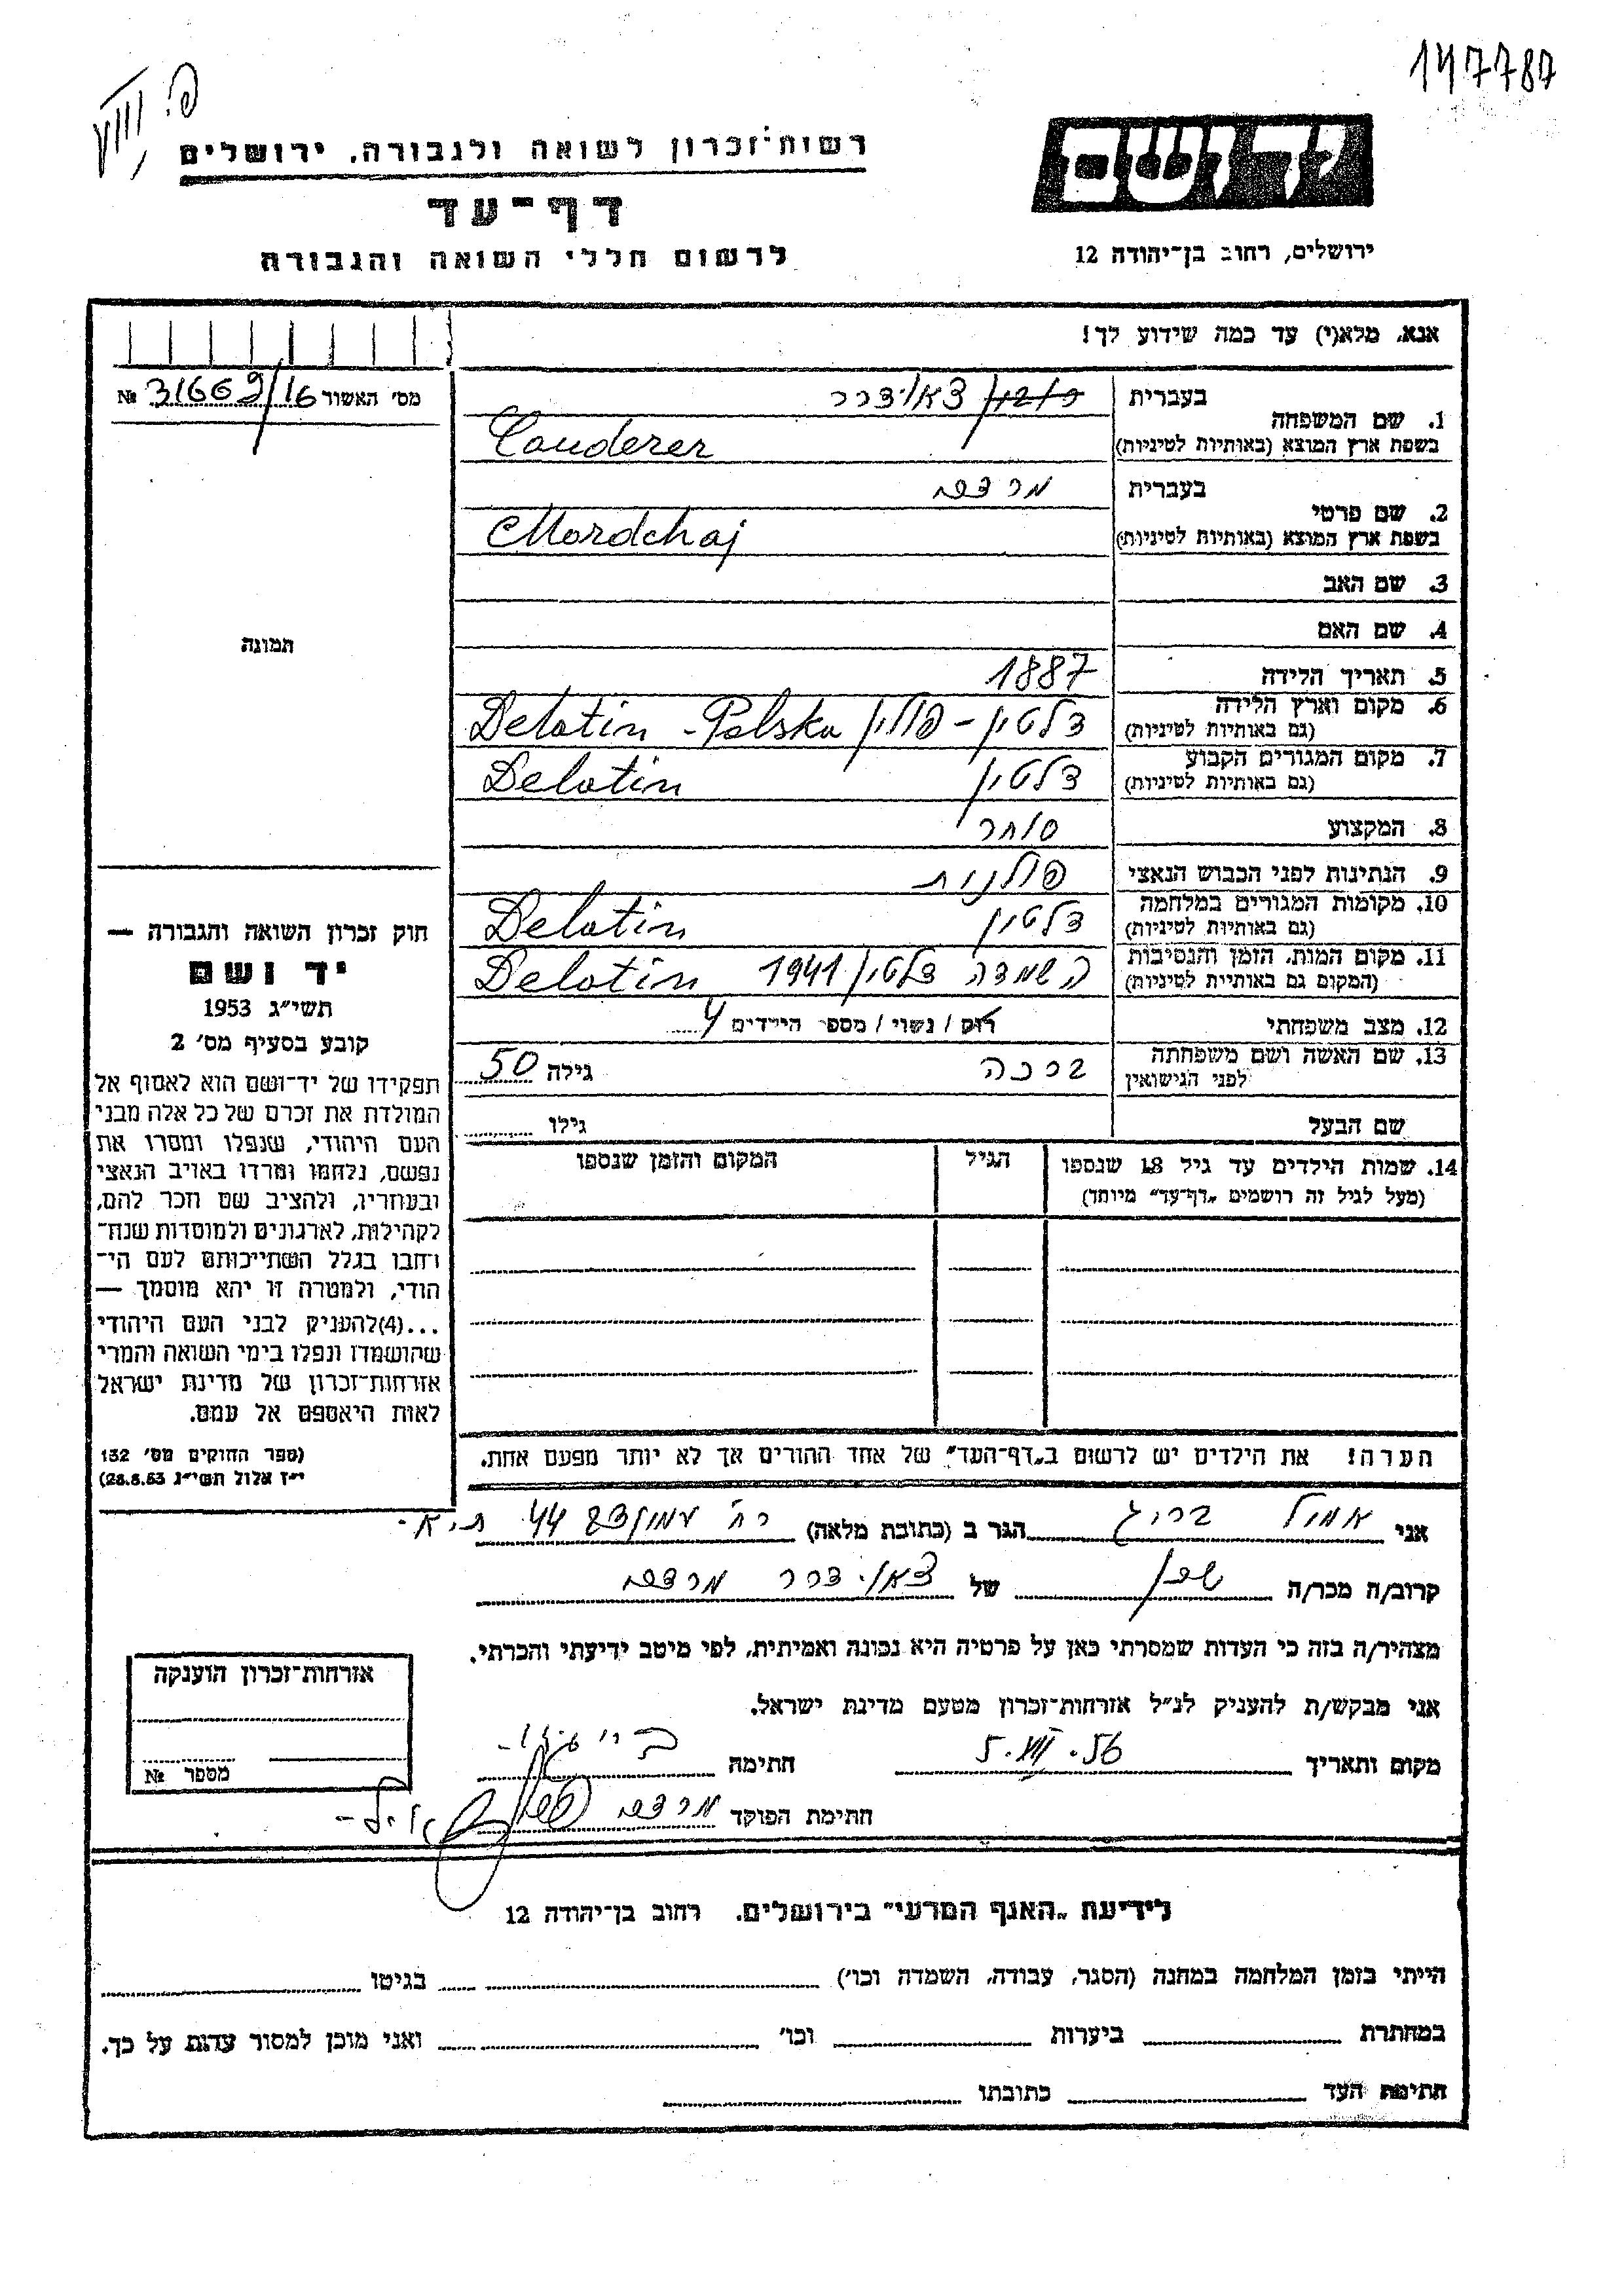 147787
פ.
רשות־זכרון לשואה ולגבורה, ירושלים
יד ושם
דף־עד
לרשום חללי השואה והגבורה
ירושלים, רחוב בן־יהודה 12
אנא, מלא(י) עד כמה שידוע לך!
מס׳ האשור 31669/16 №
1. שם המשפחה
בעברית
בשפת ארץ המוצא (באותיות לטיניות)
Couderer
2. שם פרטי
בעברית מרדכי
בשפת ארץ המוצא (באותיות לטיניות) Mordchaj
3. שם האב
4. שם האם
תמונה
5. תאריך הלידה 1887
6. מקום וארץ הלידה דלטין - פולין Delatin - Polska
(גם באותיות לטיניות)
7. מקום המגורים הקבוע דלטין Delatin
(גם באותיות לטיניות)
8. המקצוע סוחר
9. הנתינות לפני הכבוש הנאצי פולנית
10. מקומות המגורים במלחמה דלטין Delatin
(גם באותיות לטיניות)
11. מקום המות, הזמן והנסיבות השמדה דלטין 1941 Delatin
(המקום גם באותיות לטיניות)
12. מצב משפחתי רווק / נשוי / מספר הילדים 4
13. שם האשה ושם משפחתה ברכה גילה 50
לפני הנישואין
שם הבעל גילו
14. שמות הילדים עד גיל 18 שנספו הגיל המקום והזמן שנספו
(מעל לגיל זה רושמים „דף־עד״ מיוחד)
הערה! את הילדים יש לרשום ב„דף־העד״ של אחד ההורים אך לא יותר מפעם אחת.
חוק זכרון השואה והגבורה —
יד ושם
תשי״ג 1953
קובע בסעיף מס׳ 2
תפקידו של יד־ושם הוא לאסוף אל
המולדת את זכרם של כל אלה מבני
העם היהודי, שנפלו ומסרו את
נפשם, נלחמו ומרדו באויב הנאצי
ובעוזריו, ולהציב שם וזכר להם,
לקהילות, לארגונים ולמוסדות שנח־
רחבו בגלל השתייכותם לעם הי־
הודי, ולמטרה זו יהא מוסמך —
...(4)להעניק לבני העם היהודי
שהושמדו ונפלו בימי השואה והמרי
אזרחות־זכרון של מדינת ישראל
לאות היאספם אל עמם.
(ספר החוקים מס׳ 132
י״ז אלול תשי״ג 28.8.53)
אני הגר ב (כתובת מלאה) רח׳ 44 ת.א-
קרוב/ה מכר/ה שכן של מרדכי
מצהיר/ה בזה כי העדות שמסרתי כאן על פרטיה היא נכונה ואמיתית, לפי מיטב ידיעתי והכרתי.
אני מבקש/ת להעניק לנ״ל אזרחות־זכרון מטעם מדינת ישראל.
מקום ותאריך 5.VIII.56 חתימה
חתימת הפוקד מרדכי
אזרחות־זכרון הוענקה
מספר №
לידיעת „האגף המדעי״ בירושלים. רחוב בן־יהודה 12
הייתי בזמן המלחמה במחנה (הסגר, עבודה, השמדה וכו׳) בגיטו
במחתרת ביערות וכו׳ ואני מוכן למסור עדות על כך.
חתימת העד כתובתו